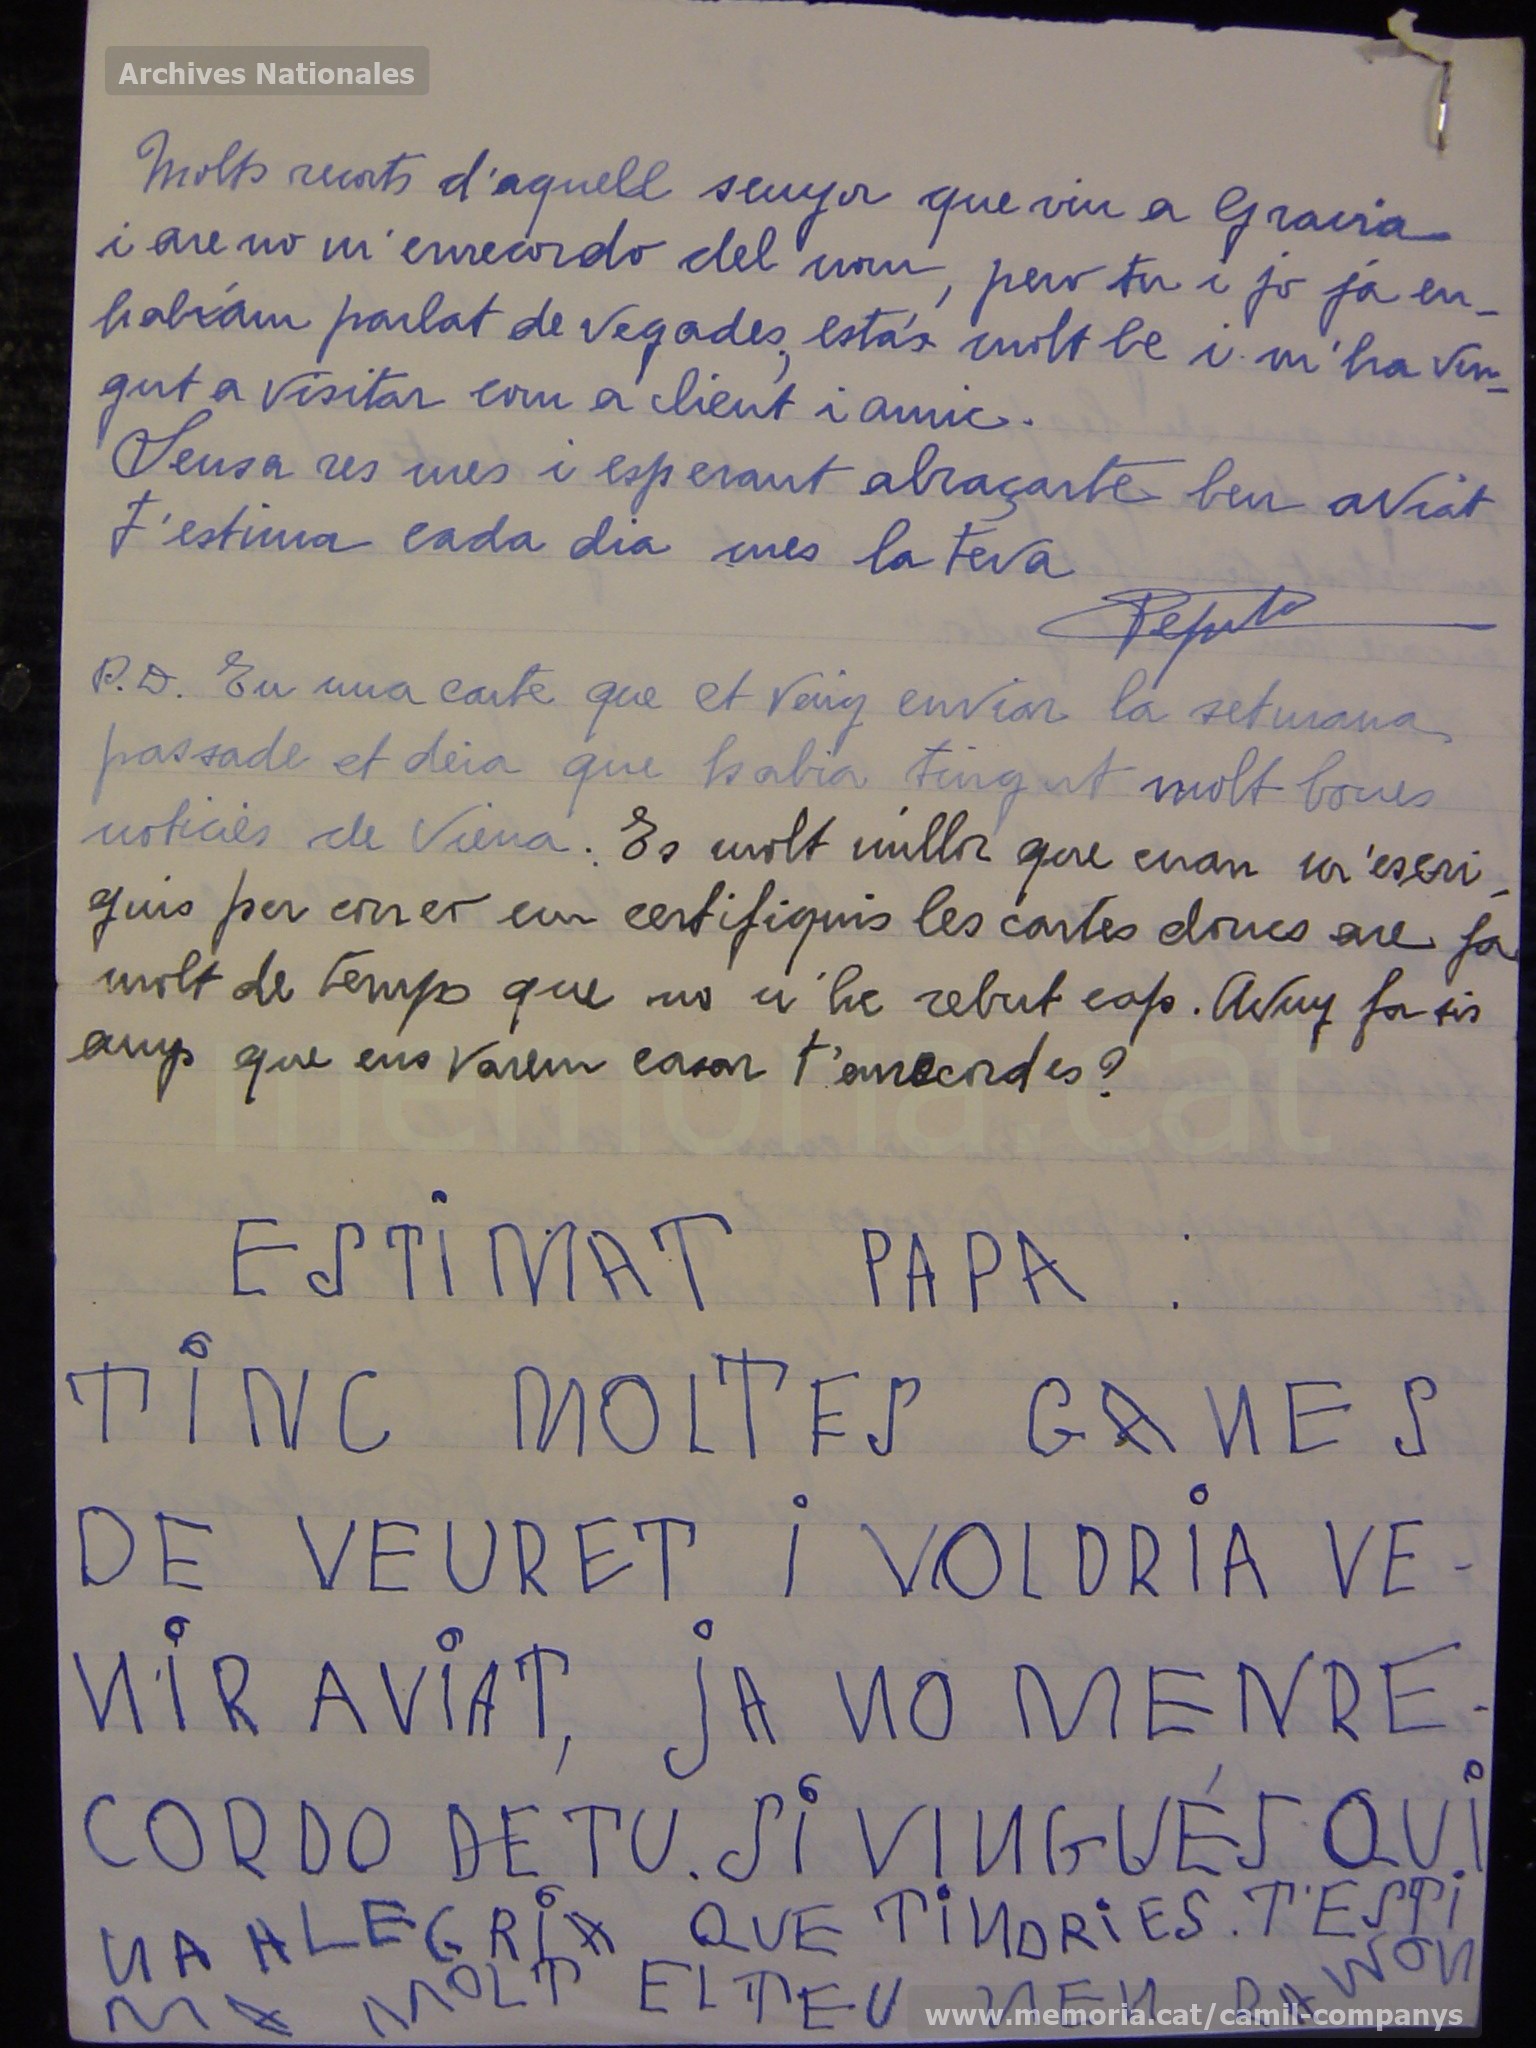 Archives Nationales
Molts recorts d'aquell senyor que viu a Gracia
i are no m'enrecordo del nom, pero tu i jo ja en-
habiám parlat de vegades, estás molt be i m'ha vin-
gut a visitar com a client i amic.
Sensa res mes i esperant abraçarte ben aviat
t'estima cada dia mes la teva
Pepita
P.D. En una carte que et vaig enviar la setmana
passade et deia que habia tingut molt bones
noticies de Viena. Es molt millor que cuan m'escri-
guis per correo em certifiquis les cartes doncs are fa
molt de temps que no n'he rebut cap. Avuy fa sis
anys que ens varem casar t'enrecordes?
memoria.cat
ESTIMAT PAPA :
TINC MOLTES GANES
DE VEURET I VOLDRIA VE-
NIR AVIAT, JA NO MENRE-
CORDO DE TU. SI VINGUÉS QUI
NA ALEGRIA QUE TINDRIES. T'ESTI
MA MOLT EL TEU NEN RAMON
www.memoria.cat/camil-companys